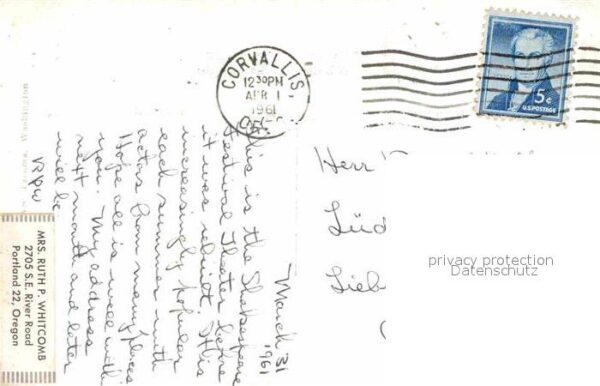 CORVALLIS,
12 30 PM
APR 1
1961
5¢
U.S. POSTAGE
March 31
1961
This is the Shakespeare
Festival Theater before
it was rebuilt. It is
increasingly popular
each summer with
actors from many places
Hope all is well with
you. My address
next month and later
will be
RPW
MRS. RUTH P. WHITCOMB
2705 S.E. River Road
Portland 22, Oregon
Herr
Lüd
Lieb
privacy protection
Datenschutz